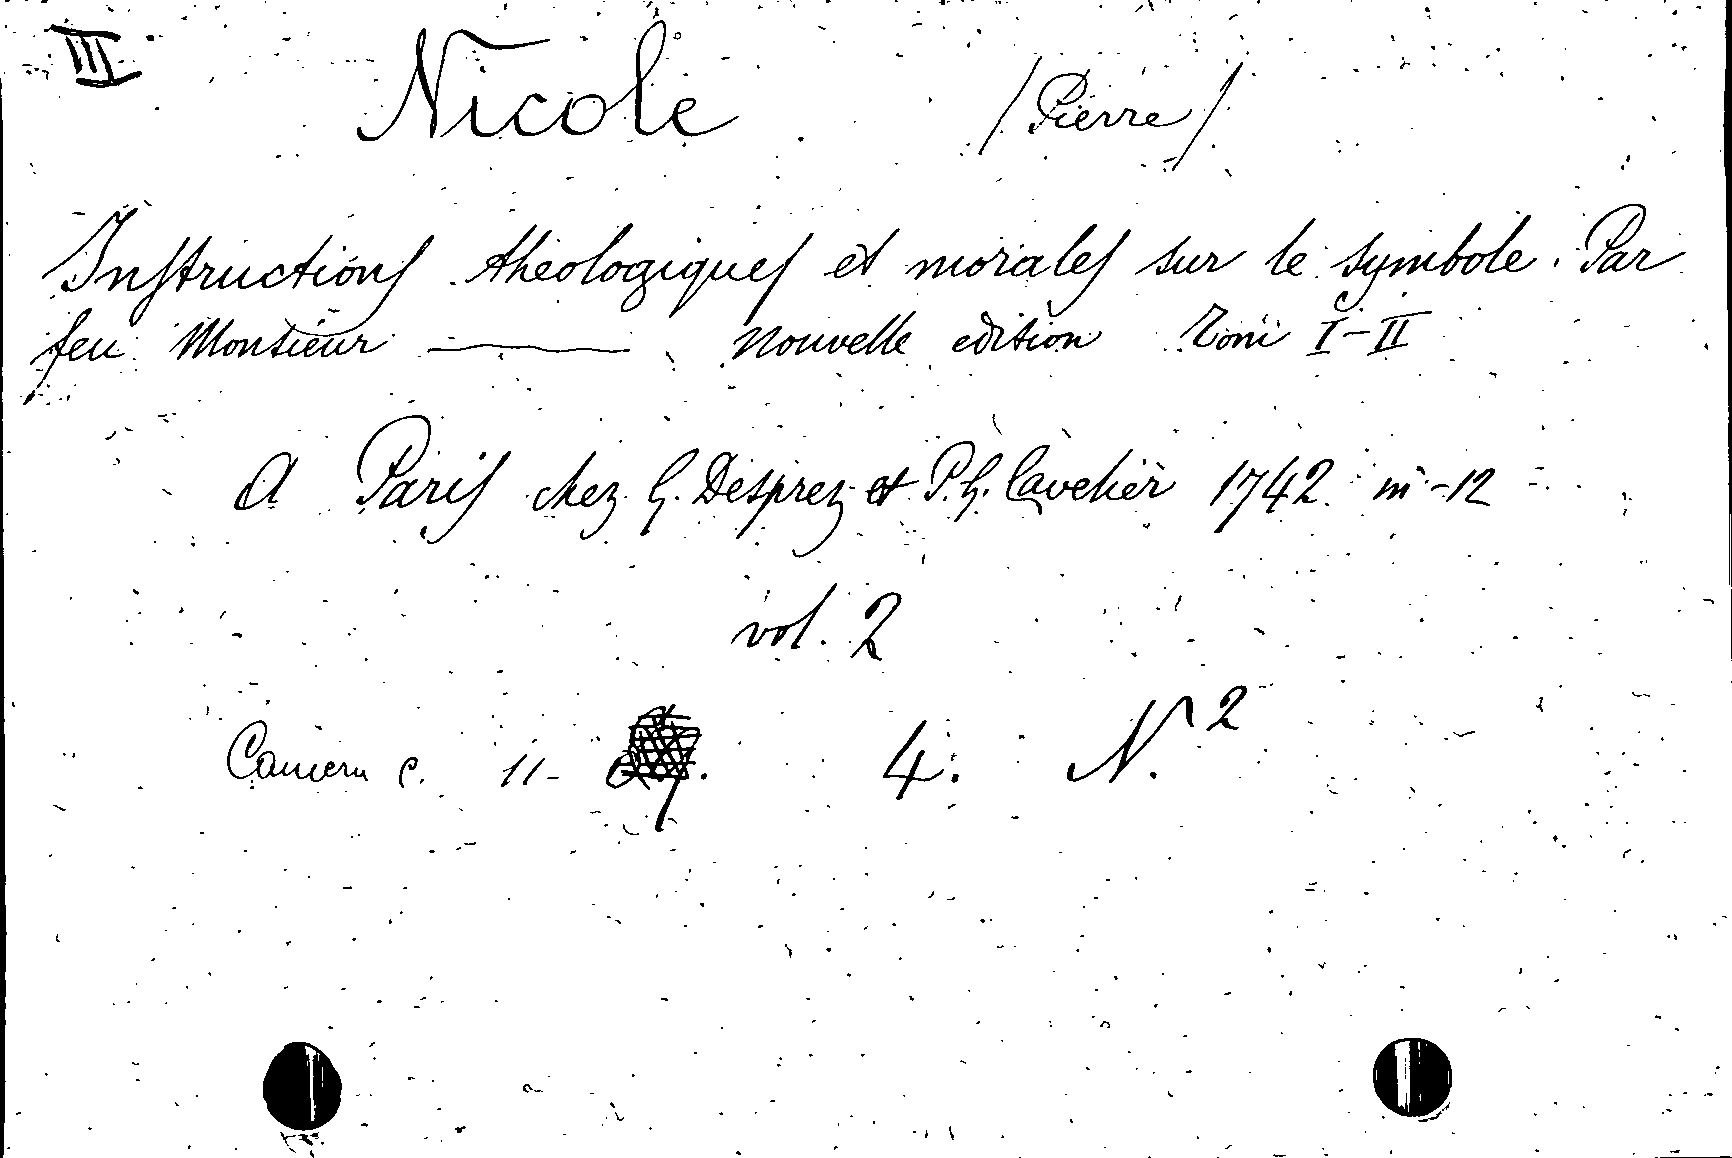 III
Nicole /Pierre/
Instructions theologiques et morales sur le symbole. Par
feu Monsieur ——— Nouvelle edition Tomi I-II
A Paris chez G. Desprez et P. G. Cavelier 1742 in-12
vol. 2
Camera c. 11- 4. N. 2